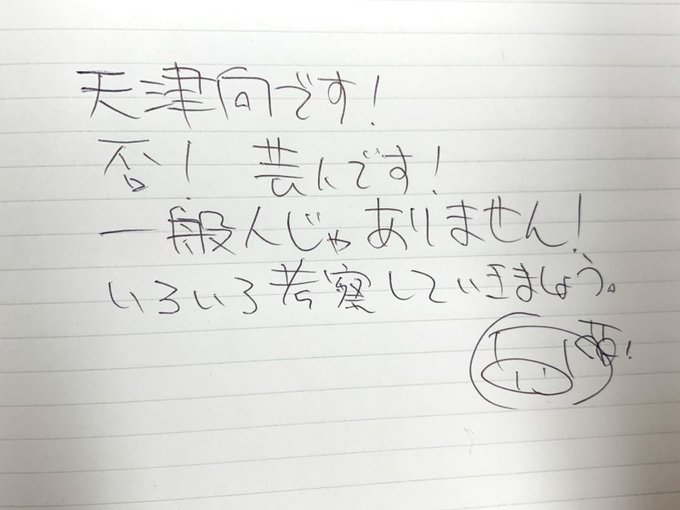 天津向です!
否! 芸人です!
一般人じゃありません!
いろいろ考察していきましょう。